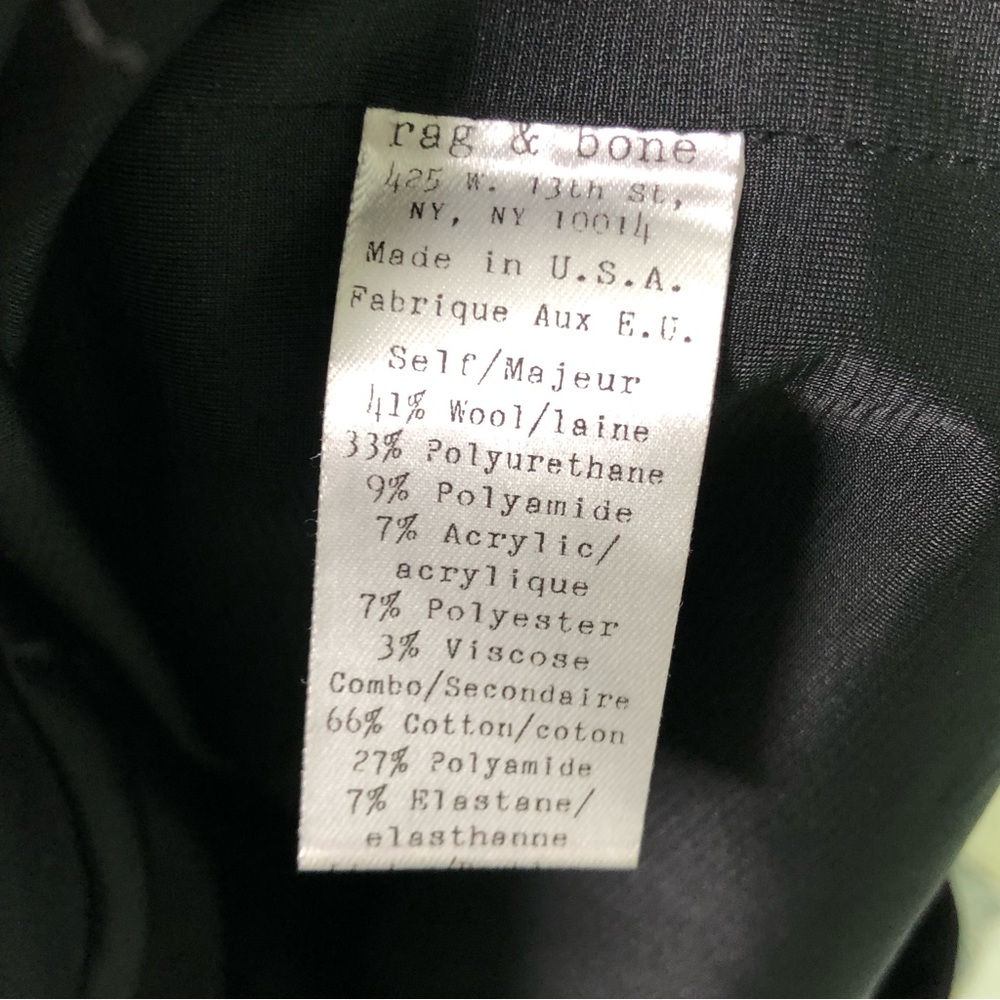 rag & bone
425 W. 13th St,
NY, NY 10014
Made in U.S.A.
Fabrique Aux E.U.
Self/Majeur
41% Wool/laine
33% Polyurethane
9% Polyamide
7% Acrylic/
acrylique
7% Polyester
3% Viscose
Combo/Secondaire
66% Cotton/coton
27% Polyamide
7% Elastane/
elasthanne